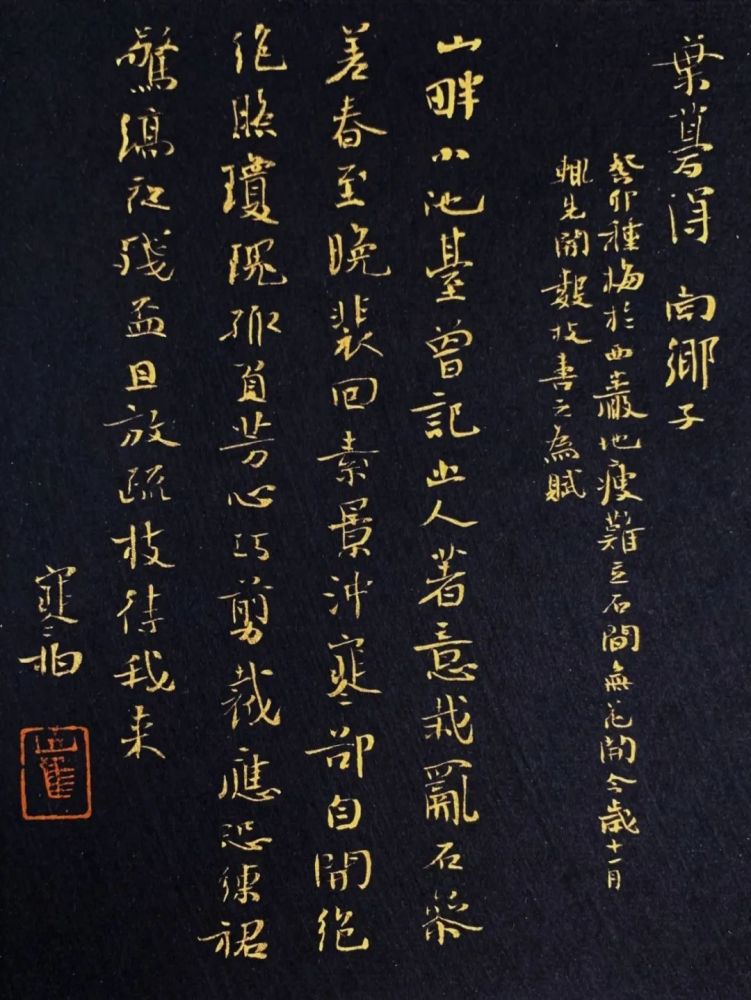 葉夢得 南鄉子
癸卯種梅於西巖地瘦難立石間無花開今歲十一月
輒先開數枝喜之為賦
山畔小池臺曾記幽人著意栽亂石參
差春至晚裴回素景沖寒卻自開絕
照瓊瑰孤負芳心巧剪裁應恐練裙
驚縞夜殘盃且放疏枝待我來
寒柏